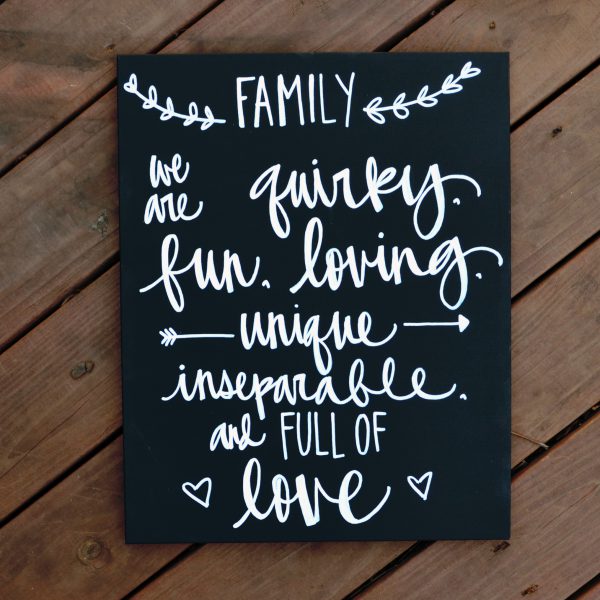 FAMILY
we are quirky.
fun. loving.
unique
inseparable.
and FULL OF
love